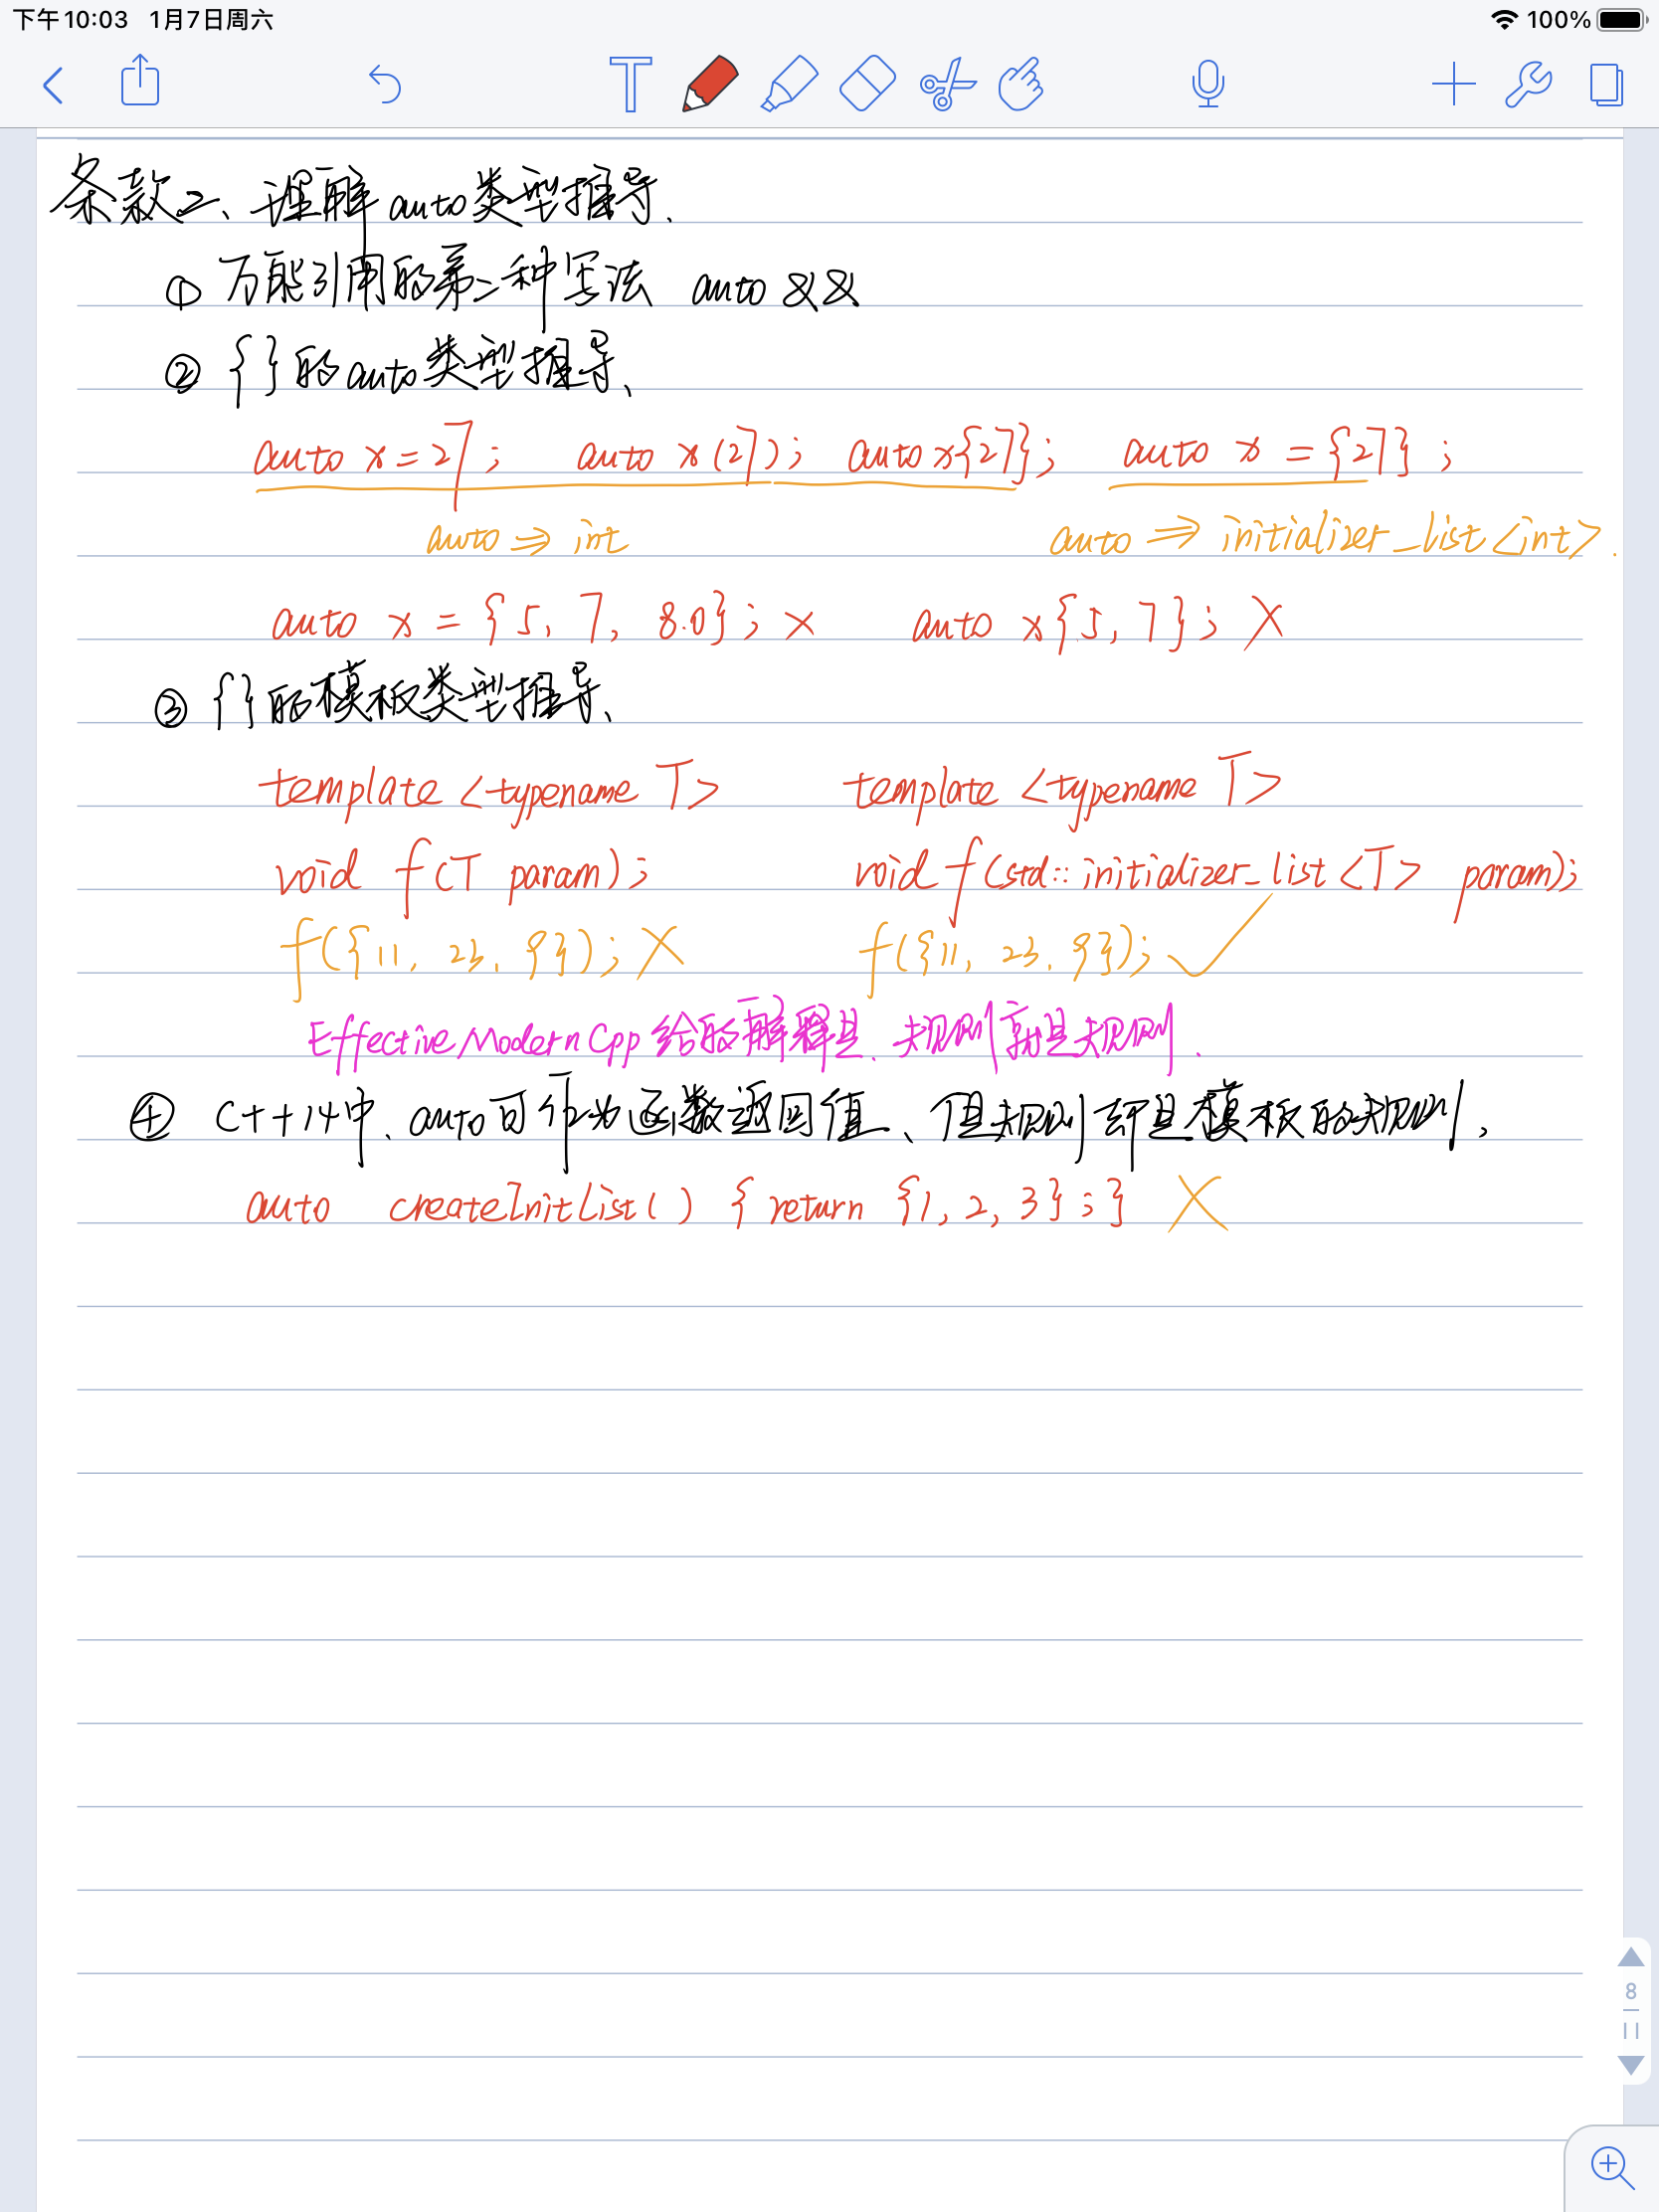 下午10:03 1月7日周六
100%
条款二、理解auto类型推导.
① 万能引用的第二种写法 auto &&
② {}的auto类型推导、
auto x=27; auto x(27); auto x{27}; auto x = {27};
auto ⇒ int auto ⇒ initializer_list<int>.
auto x = {5, 7, 8.0}; × auto x{5, 7}; ×
③ {}的模板类型推导、
template <typename T> template <typename T>
void f(T param); void f(std::initializer_list<T> param);
f({11, 23, 9}); × f({11, 23, 9}); ✓
Effective Modern Cpp 给的解释是、规则就是规则.
④ C++14中、auto可作为函数返回值、但规则却是模板的规则,
auto createInitList() { return {1, 2, 3};} ×
8
11